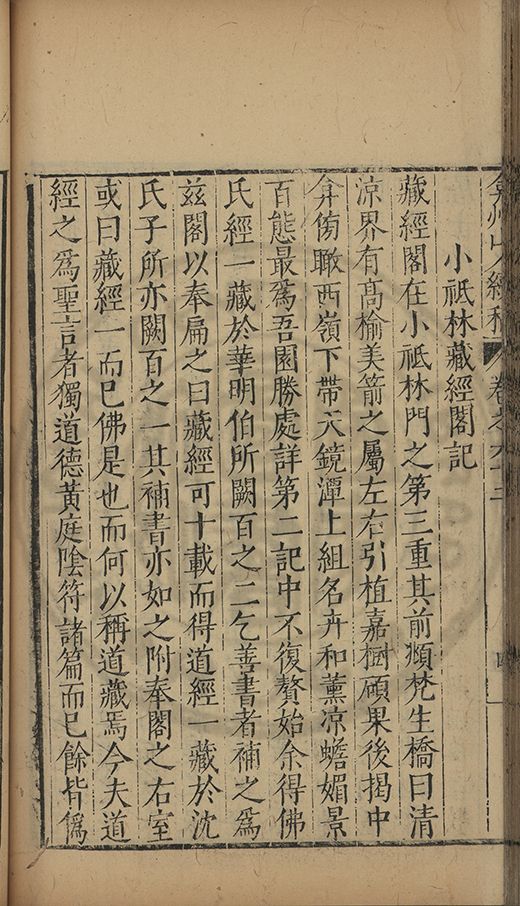 弇州山人續稿 卷之六十三
小祇林藏經閣記
藏經閣在小祇林門之第三重其前頫梵生橋曰清
涼界有高榆美箭之屬左右引植嘉樹碩果後揭中
弇傍瞰西嶺下帶天鏡潭上組名卉和薰涼蟾媚景
百態最爲吾園勝處詳第二記中不復贅始余得佛
氏經一藏於華明伯所闕百之二乞善書者補之爲
茲閣以奉扁之曰藏經可十載而得道經一藏於沈
氏子所亦闕百之一其補書亦如之附奉閣之右室
或曰藏經一而已佛是也而何以稱道藏焉今夫道
經之爲聖言者獨道德黃庭陰符諸篇而已餘皆僞